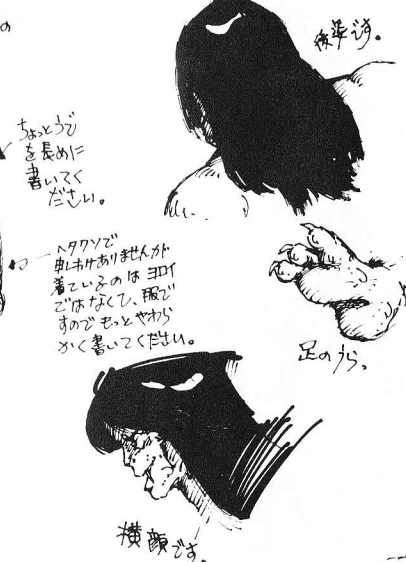 の
後姿です。
ちょっとうで
を長めに
書いてく
ださい。
ヘタクソで
申しわけありませんが
着ているのは ヨロイ
ではなくて、服で
すので もっと やわら
かく書いてください。
足のうら。
横顔です。